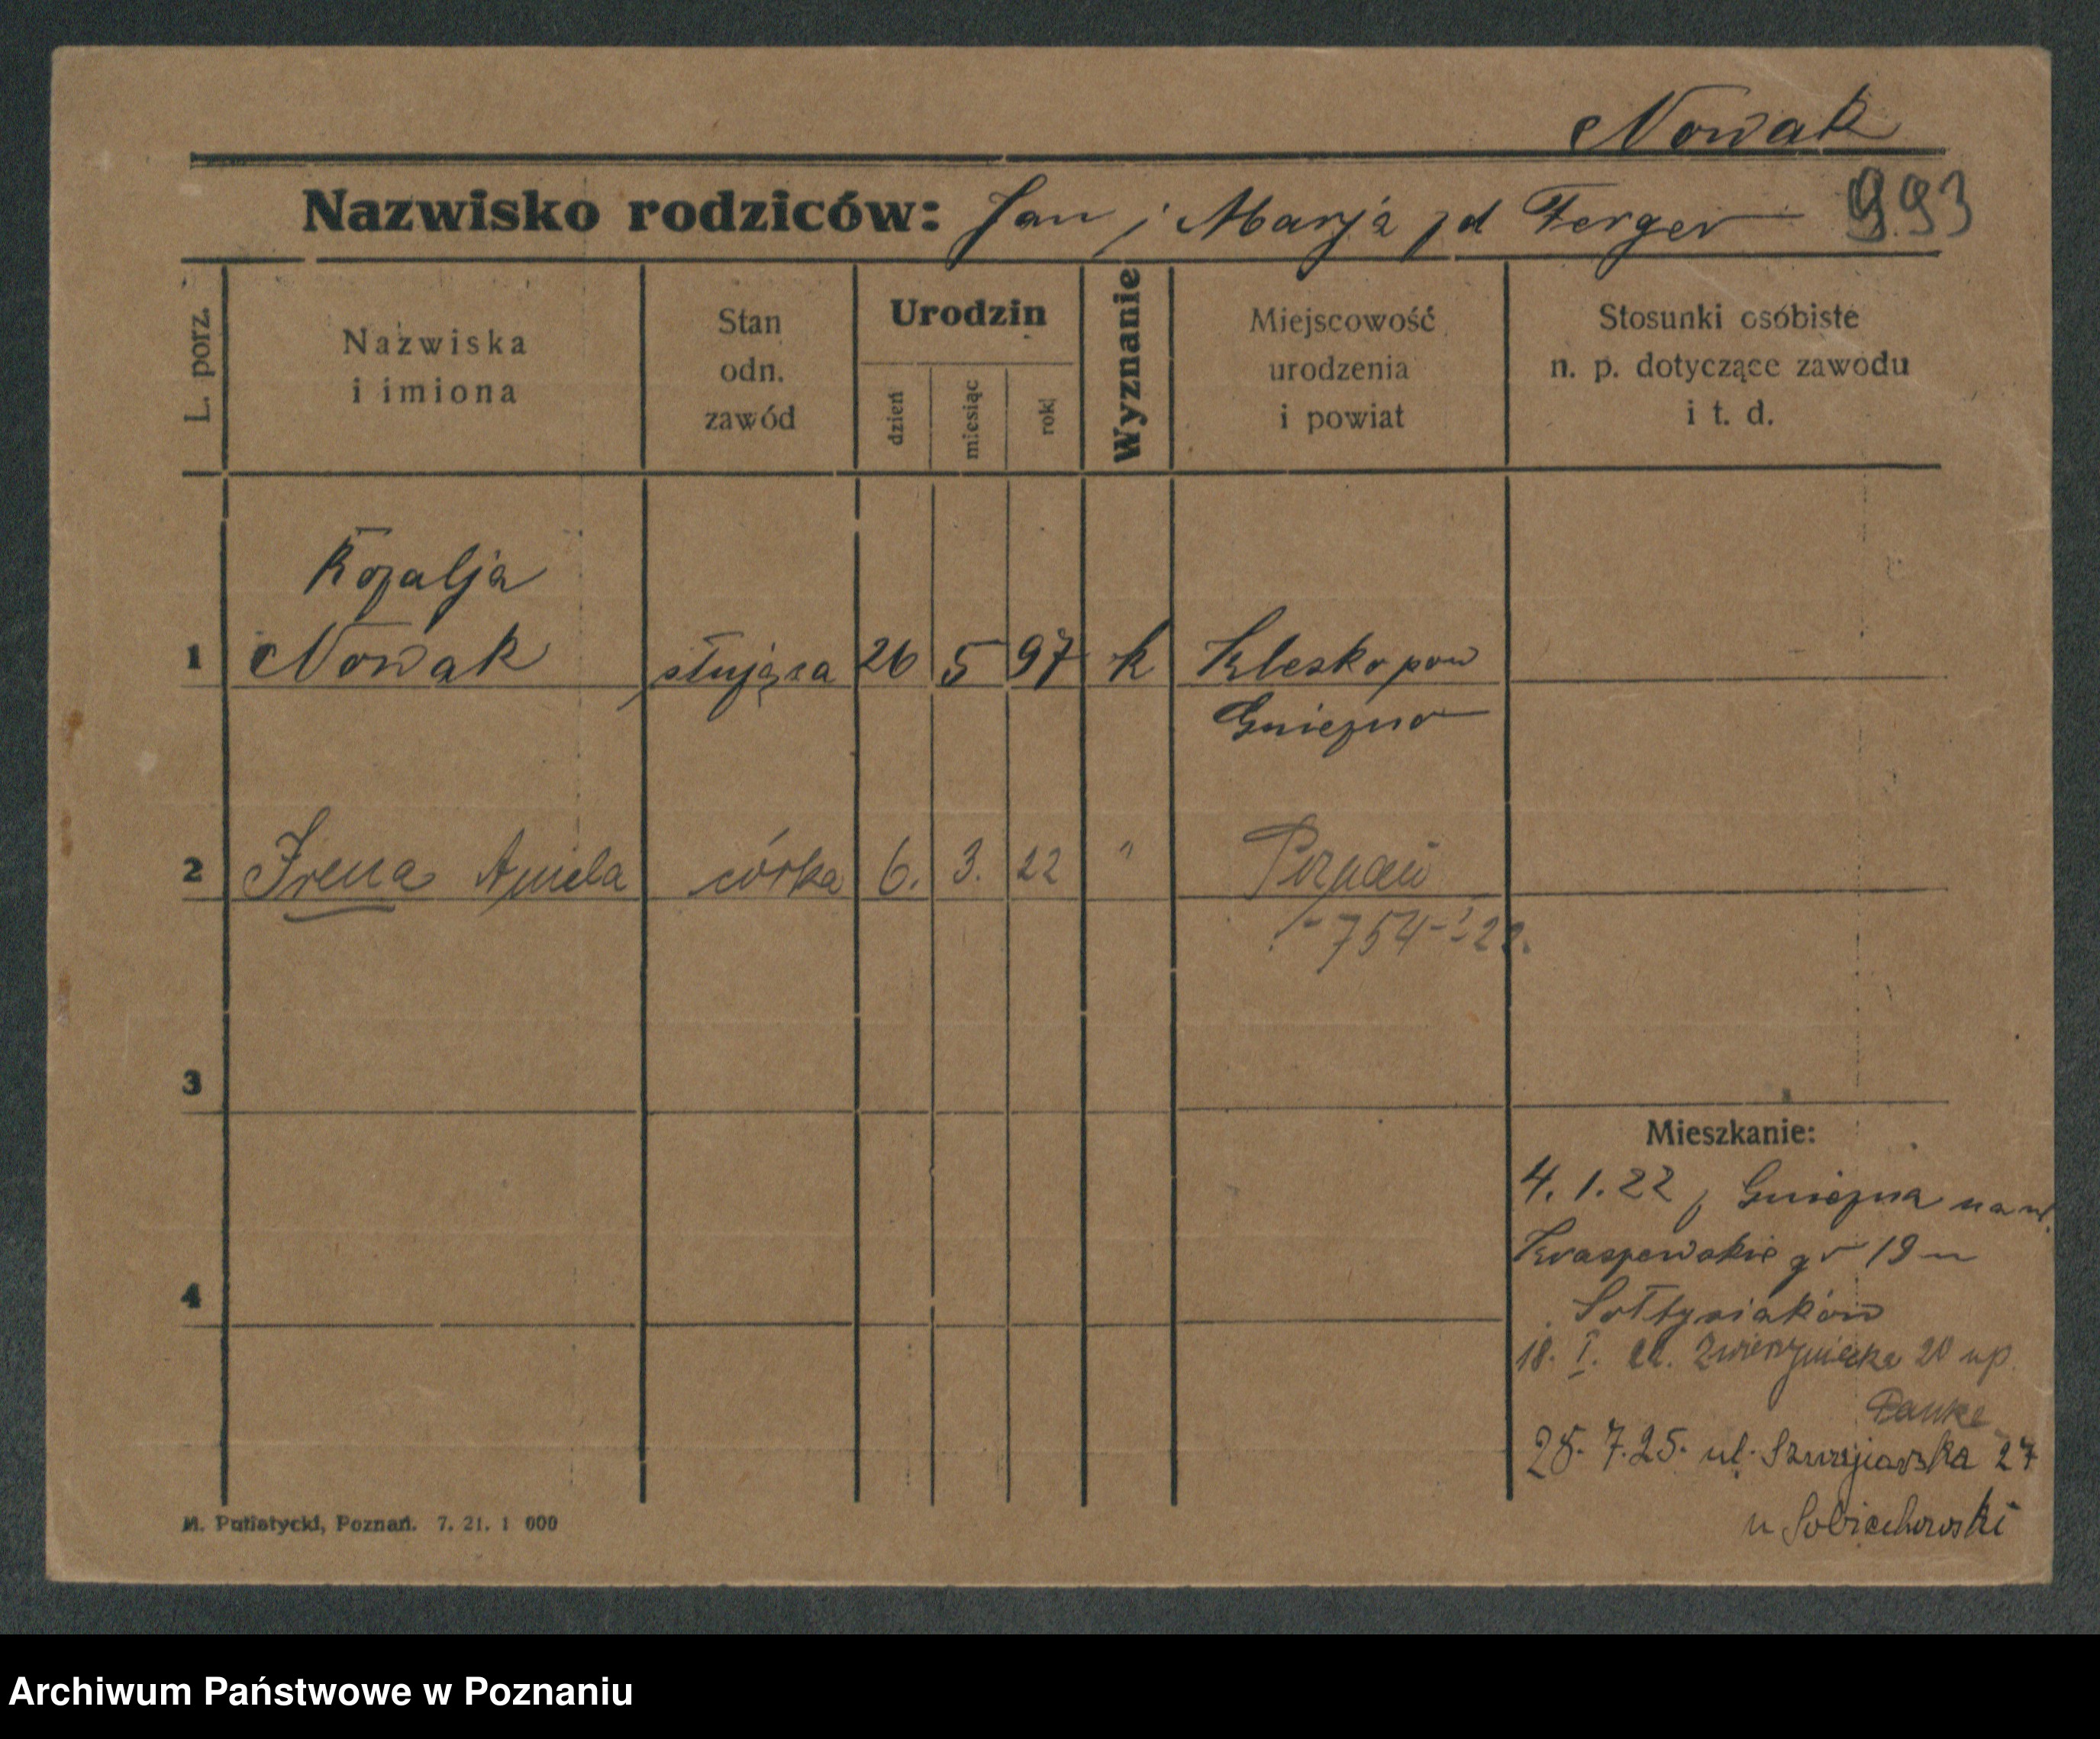 Nowak
Nazwisko rodziców: Jan i Marja zd Ferger 993
L. porz.
Nazwiska i imiona
Stan odn. zawód
Urodzin
dzień
miesiąc
rok
Wyznanie
Miejscowość urodzenia i powiat
Stosunki osóbiste n. p. dotyczące zawodu i t. d.
Rozalja
1 Nowak służąca 26 5 97 k Klesko pow
Gniezno
2 Irena Aniela córka 6. 3. 22 " Poznań
754 22.
3
Mieszkanie:
4. 1. 22 z Gniezna na ul.
Kraszewskiego 19 u
4
Sołtysiaków
18. I. 22. Zwierzyniecka 20 up.
28. 7. 25. ul. 27
u Sobiechowski
M. Putiatycki, Poznań. 7. 21. 1 000
Archiwum Państwowe w Poznaniu